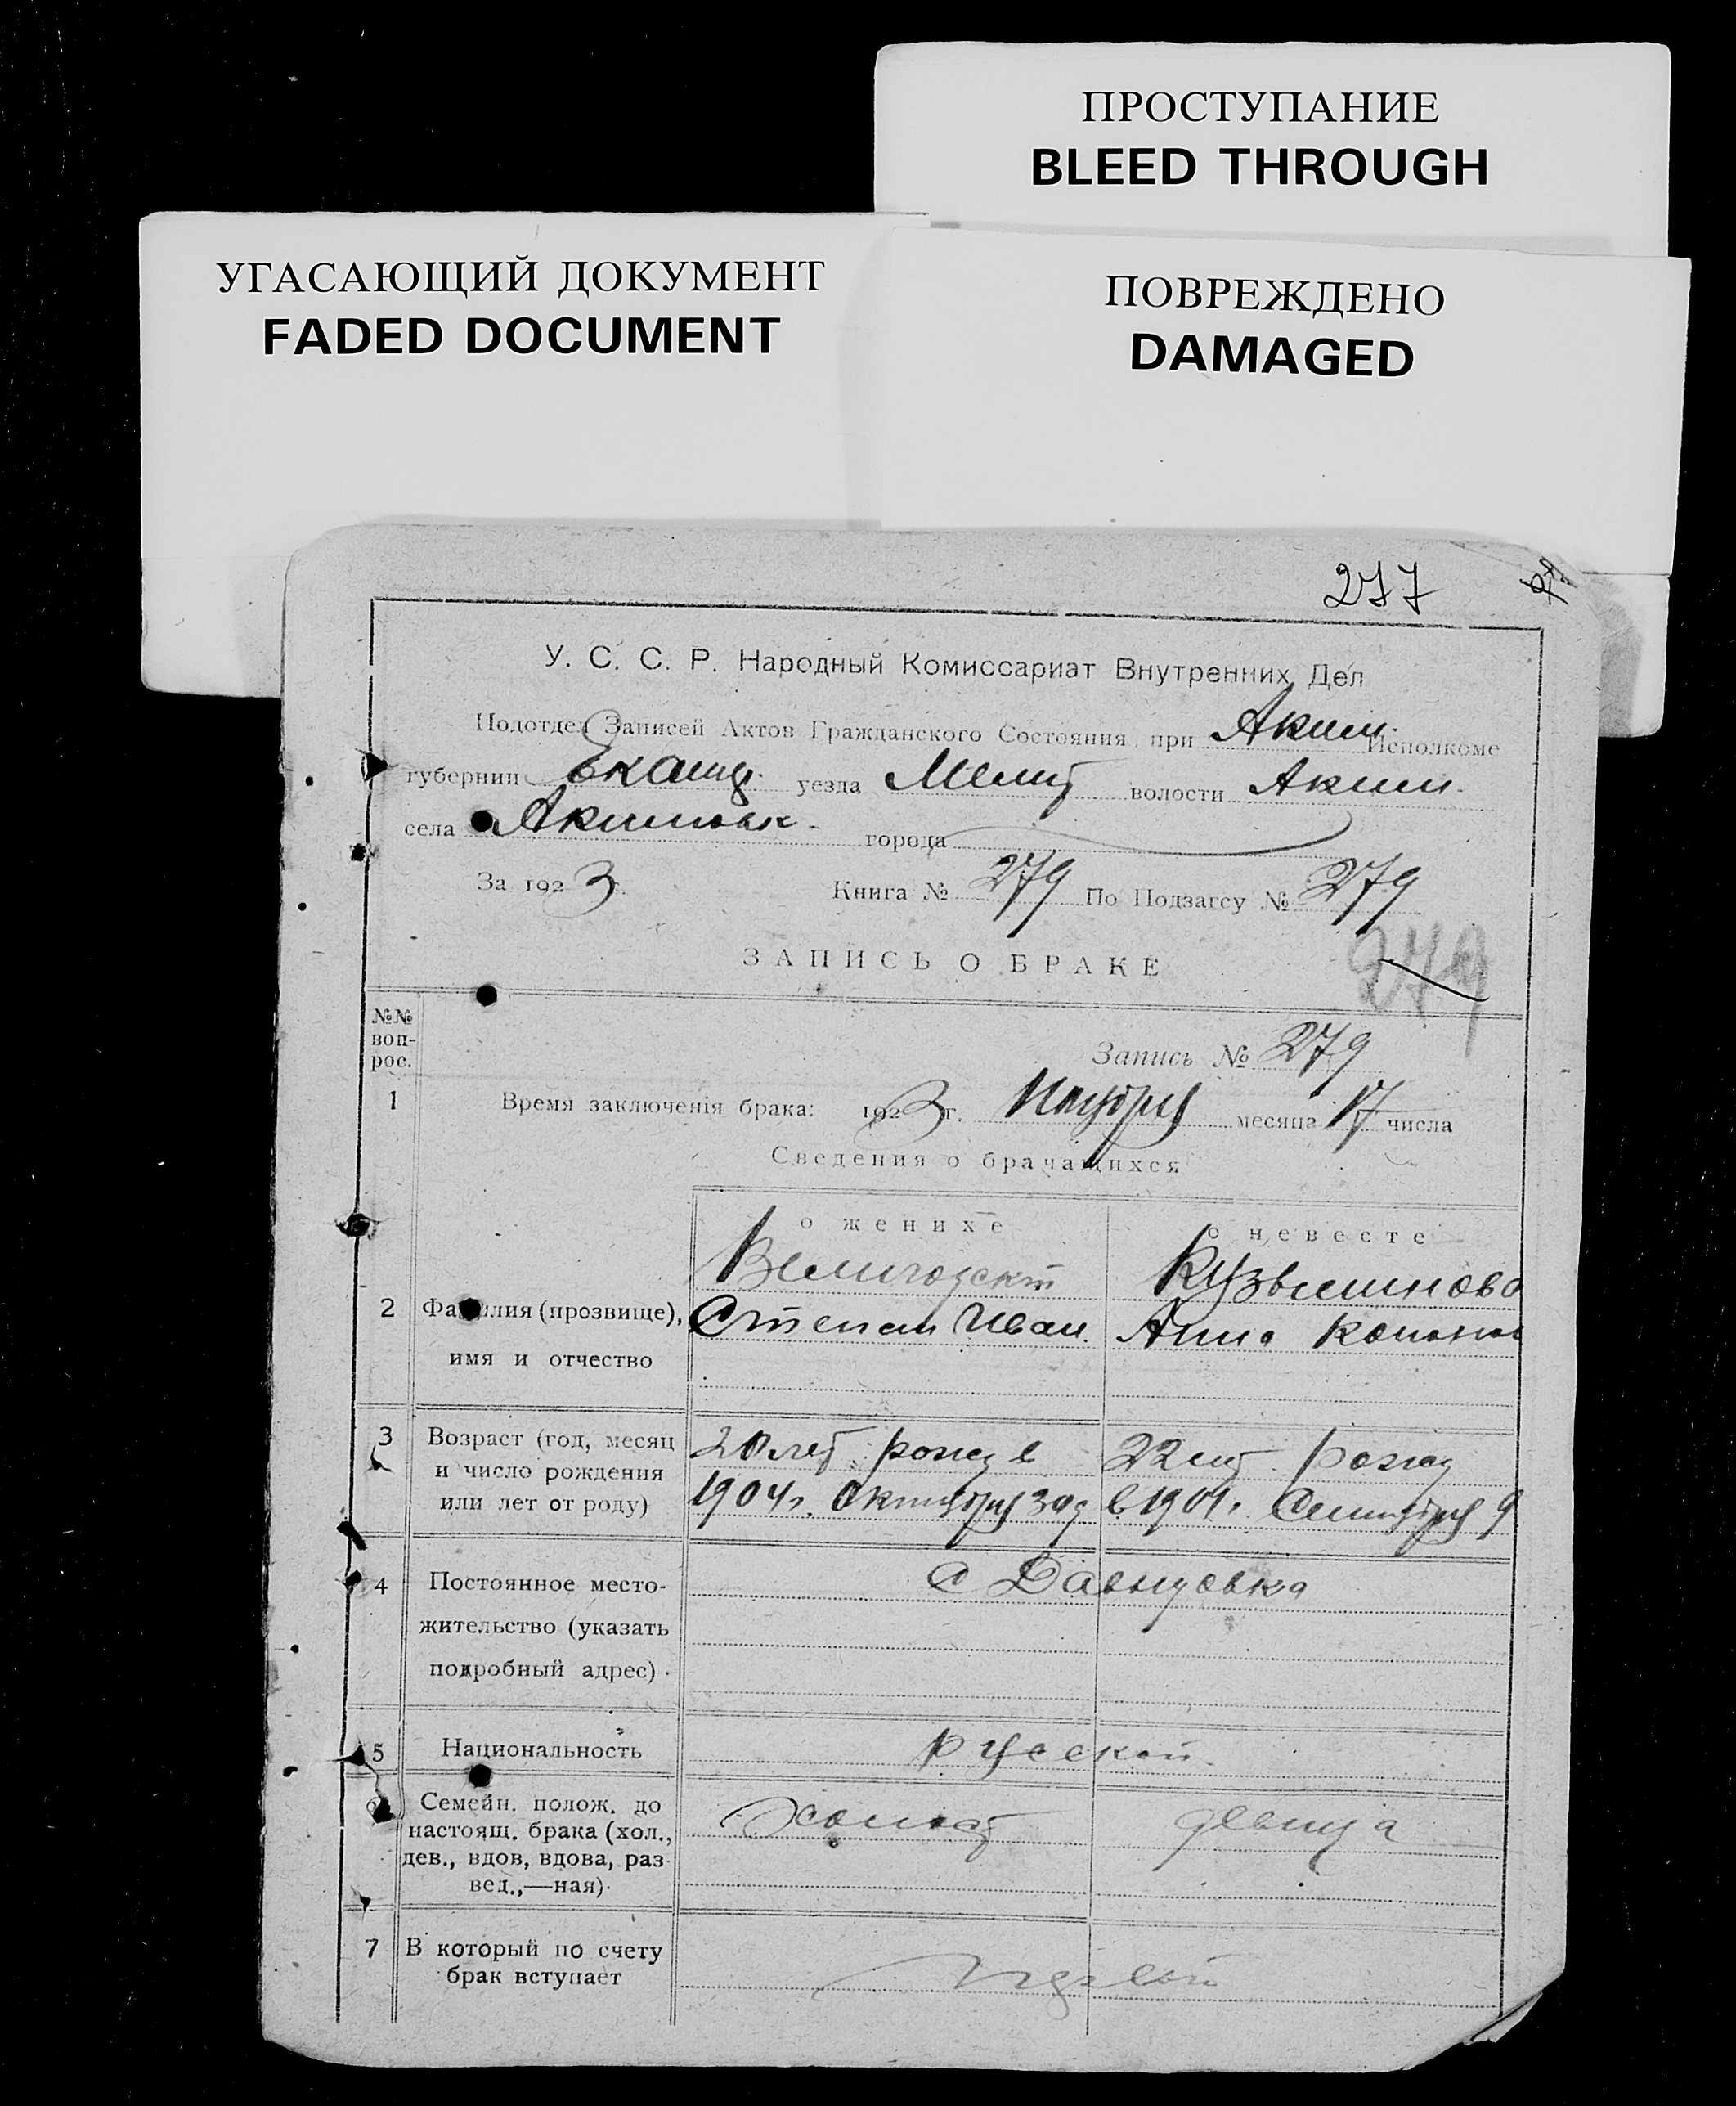 ПРОСТУПАНИЕ
BLEED THROUGH
УГАСАЮЩИЙ ДОКУМЕНТ
FADED DOCUMENT
ПОВРЕЖДЕНО
DAMAGED
277
У. С. С. Р. Народный Комиссариат Внутренних Дел
Подотдел Записей Актов Гражданского Состояния при Аким. Исполкоме
губернии Екатер. уезда Мелит волости Аким.
села Акимовк. города
За 1923 г. Книга № 279 По Подзагсу № 279
ЗАПИСЬ О БРАКЕ
279
№№ вопрос.
Запись № 279
1 Время заключенія брака: 1923 г. Ноября месяца 17 числа
Сведения о брачащихся
о женихе о невесте
2 Фамилия (прозвище), имя и отчество
Величодскт Кузьминова
Степан Иван. Анна Конон
3 Возраст (год, месяц и число рождения или лет от роду)
20 лет рожд в 22 лет рожд
1904 г. Октября 30 д в 1901 г. Сентября 9
4 Постоянное местожительство (указать подробный адрес)
с Давыдовка
5 Национальность
русской
6 Семейн. полож. до настоящ. брака (хол., дев., вдов, вдова, развед.,—ная)
холост девица
7 В который по счету брак вступает
первый